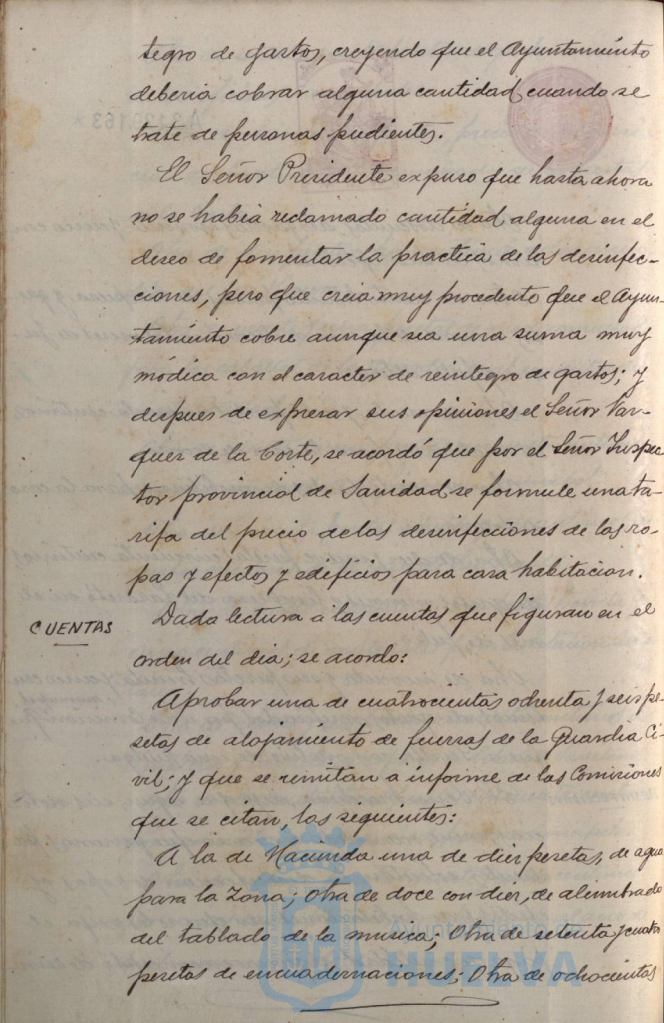 tegro de gastos, creyendo que el Ayuntamiento
deberia cobrar alguna cantidad cuando se
trate de personas pudientes.
El Señor Presidente expuso que hasta ahora
no se habia reclamado cantidad alguna en el
deseo de fomentar la practica de las desinfec-
ciones, pero que creia muy procedente que el Ayun-
tamiento cobre aunque sea una suma muy
módica con el caracter de reintegro de gastos; y
despues de expresar sus opiniones el Señor Vaz-
quez de la Corte, se acordó que por el Señor Inspec-
tor provincial de Sanidad se formule una ta-
rifa del precio de las desinfecciones de las ro-
pas y efectos y edificios para casa habitacion.
CUENTAS
Dada lectura a las cuentas que figuran en el
orden del dia; se acordo:
Aprobar una de cuatrocientas ochenta y seis pe-
setas de alojamiento de fuerzas de la Guardia Ci-
vil; y que se remitan a informe de las Comisiones
que se citan, las siguientes:
A la de Hacienda una de diez pesetas, de agua
para la Zona; Otra de doce con diez, de alumbrado
del tablado de la musica; Otra de setenta y cuatro
pesetas de encuadernaciones; Otra de ochocientas
HUELVA